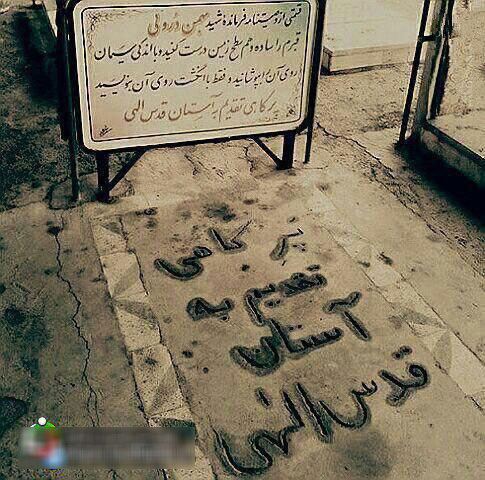 قسمتی از وصیتنامه فرمانده شهید بهمن درولی
قبرم را ساده و هم سطح زمین درست کنید و با اندکی سیمان
روی آن را بپوشانید و فقط با انگشت روی آن بنویسید
پرکاهی تقدیم به آستان قدس الهی
پر کاهی
تقدیم به
آستان
قدس الهی